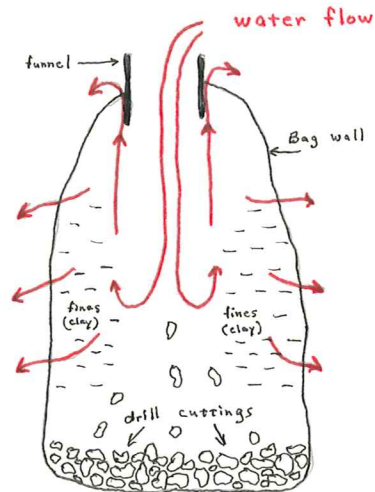 water flow
funnel
Bag wall
fines
(clay)
fines
(clay)
drill cuttings